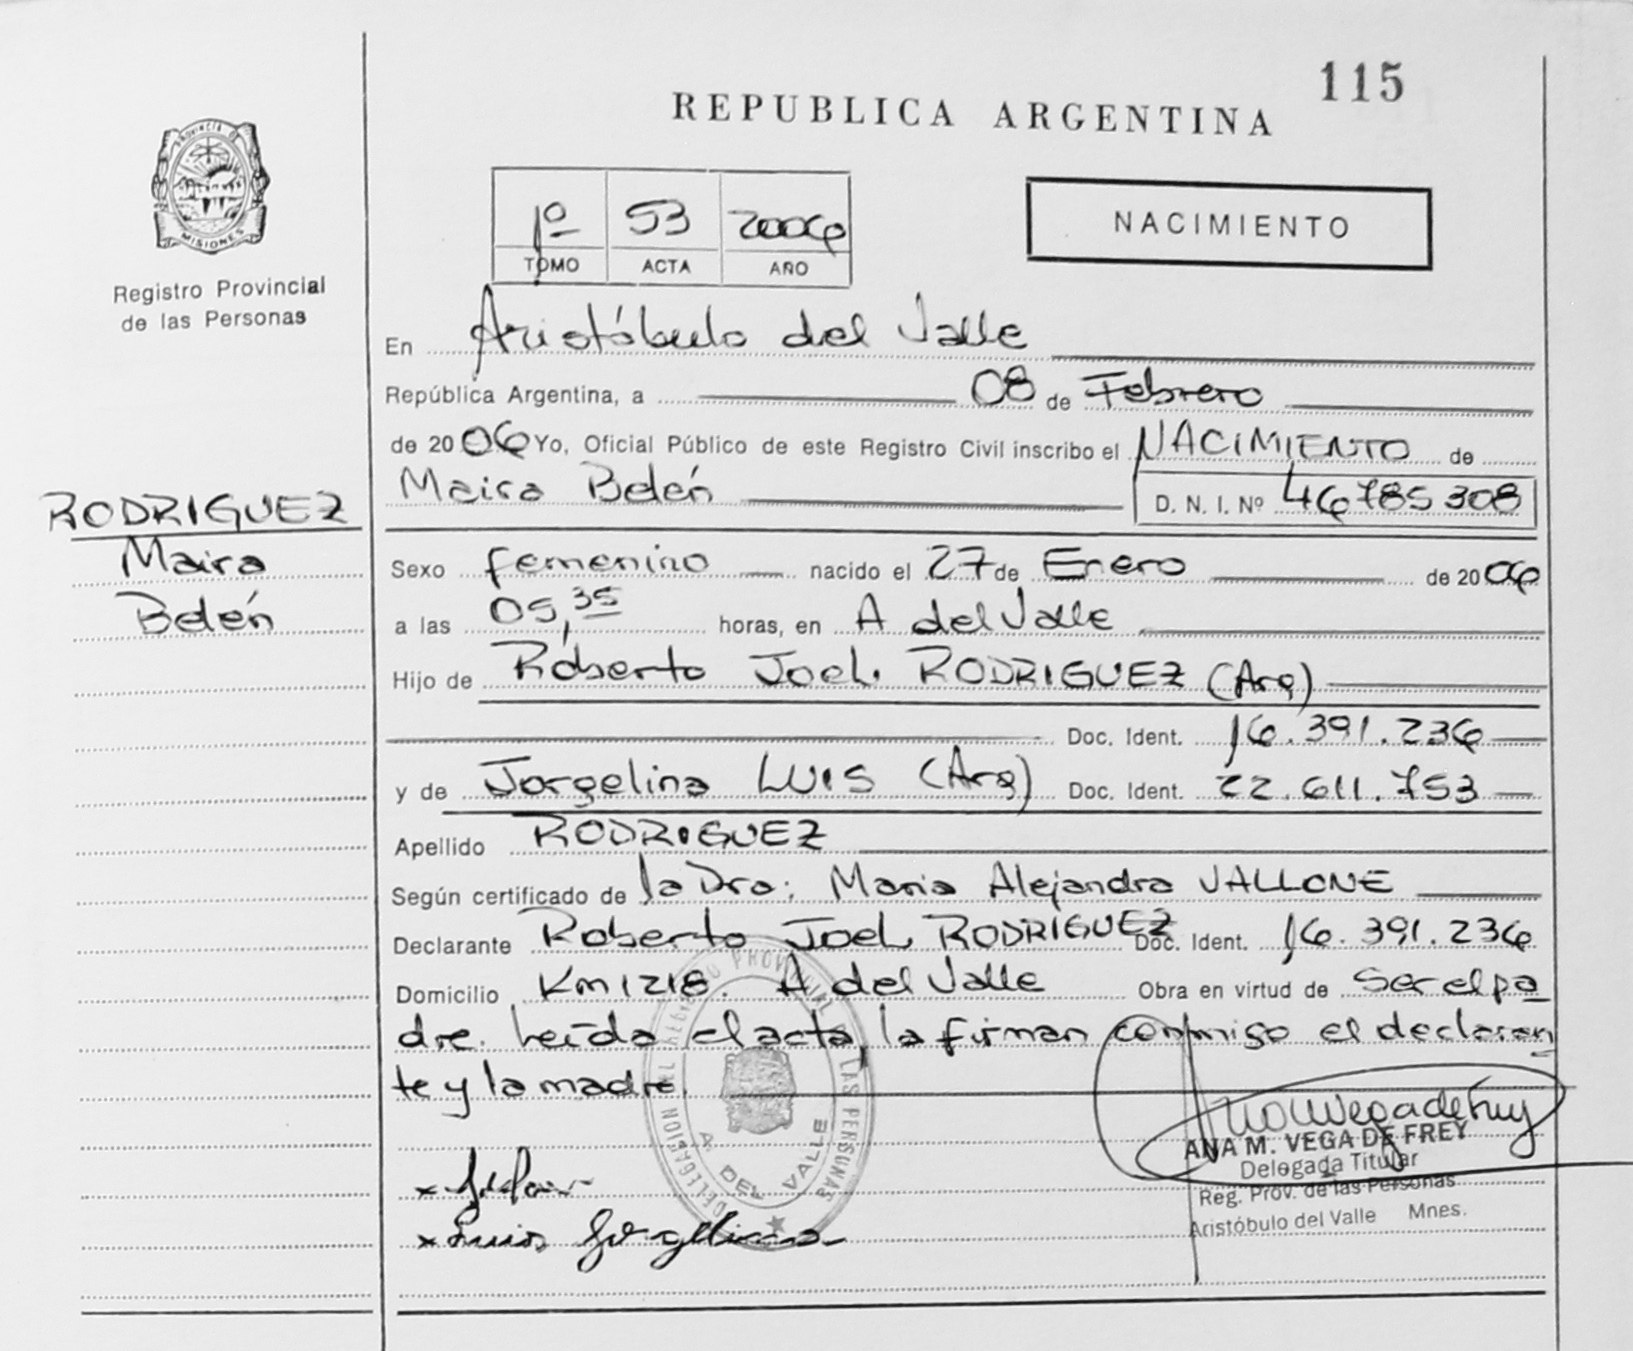 115
REPUBLICA ARGENTINA
PROVINCIA DE
MISIONES
Registro Provincial
de las Personas
1º 53 2006
TOMO ACTA AÑO
NACIMIENTO
En Aristóbulo del Valle
República Argentina, a 08 de Febrero
de 2006 Yo, Oficial Público de este Registro Civil inscribo el NACIMIENTO de
Maira Belén D. N. I. Nº 46785308
RODRIGUEZ
Maira
Belén
Sexo femenino nacido el 27 de Enero de 2006
a las 05,35 horas, en A del Valle
Hijo de Roberto Joel RODRIGUEZ (Arg)
Doc. Ident. 16.391.236
y de Jorgelina LUIS (Arg) Doc. Ident. 22.611.753
Apellido RODRIGUEZ
Según certificado de la Dra: Maria Alejandra VALLONE
Declarante Roberto Joel RODRIGUEZ Doc. Ident. 16.391.236
Domicilio Km 1218. A del Valle Obra en virtud de Ser el pa
dre. Leída el acta, la firman conmigo el declaran
te y la madre.
DELEGACION REGISTRO PROVINCIAL DE LAS PERSONAS
A. DEL VALLE
x Luis Jorgelina
ANA M. VEGA DE FREY
Delegada Titular
Reg. Prov. de las Personas
Aristóbulo del Valle Mnes.